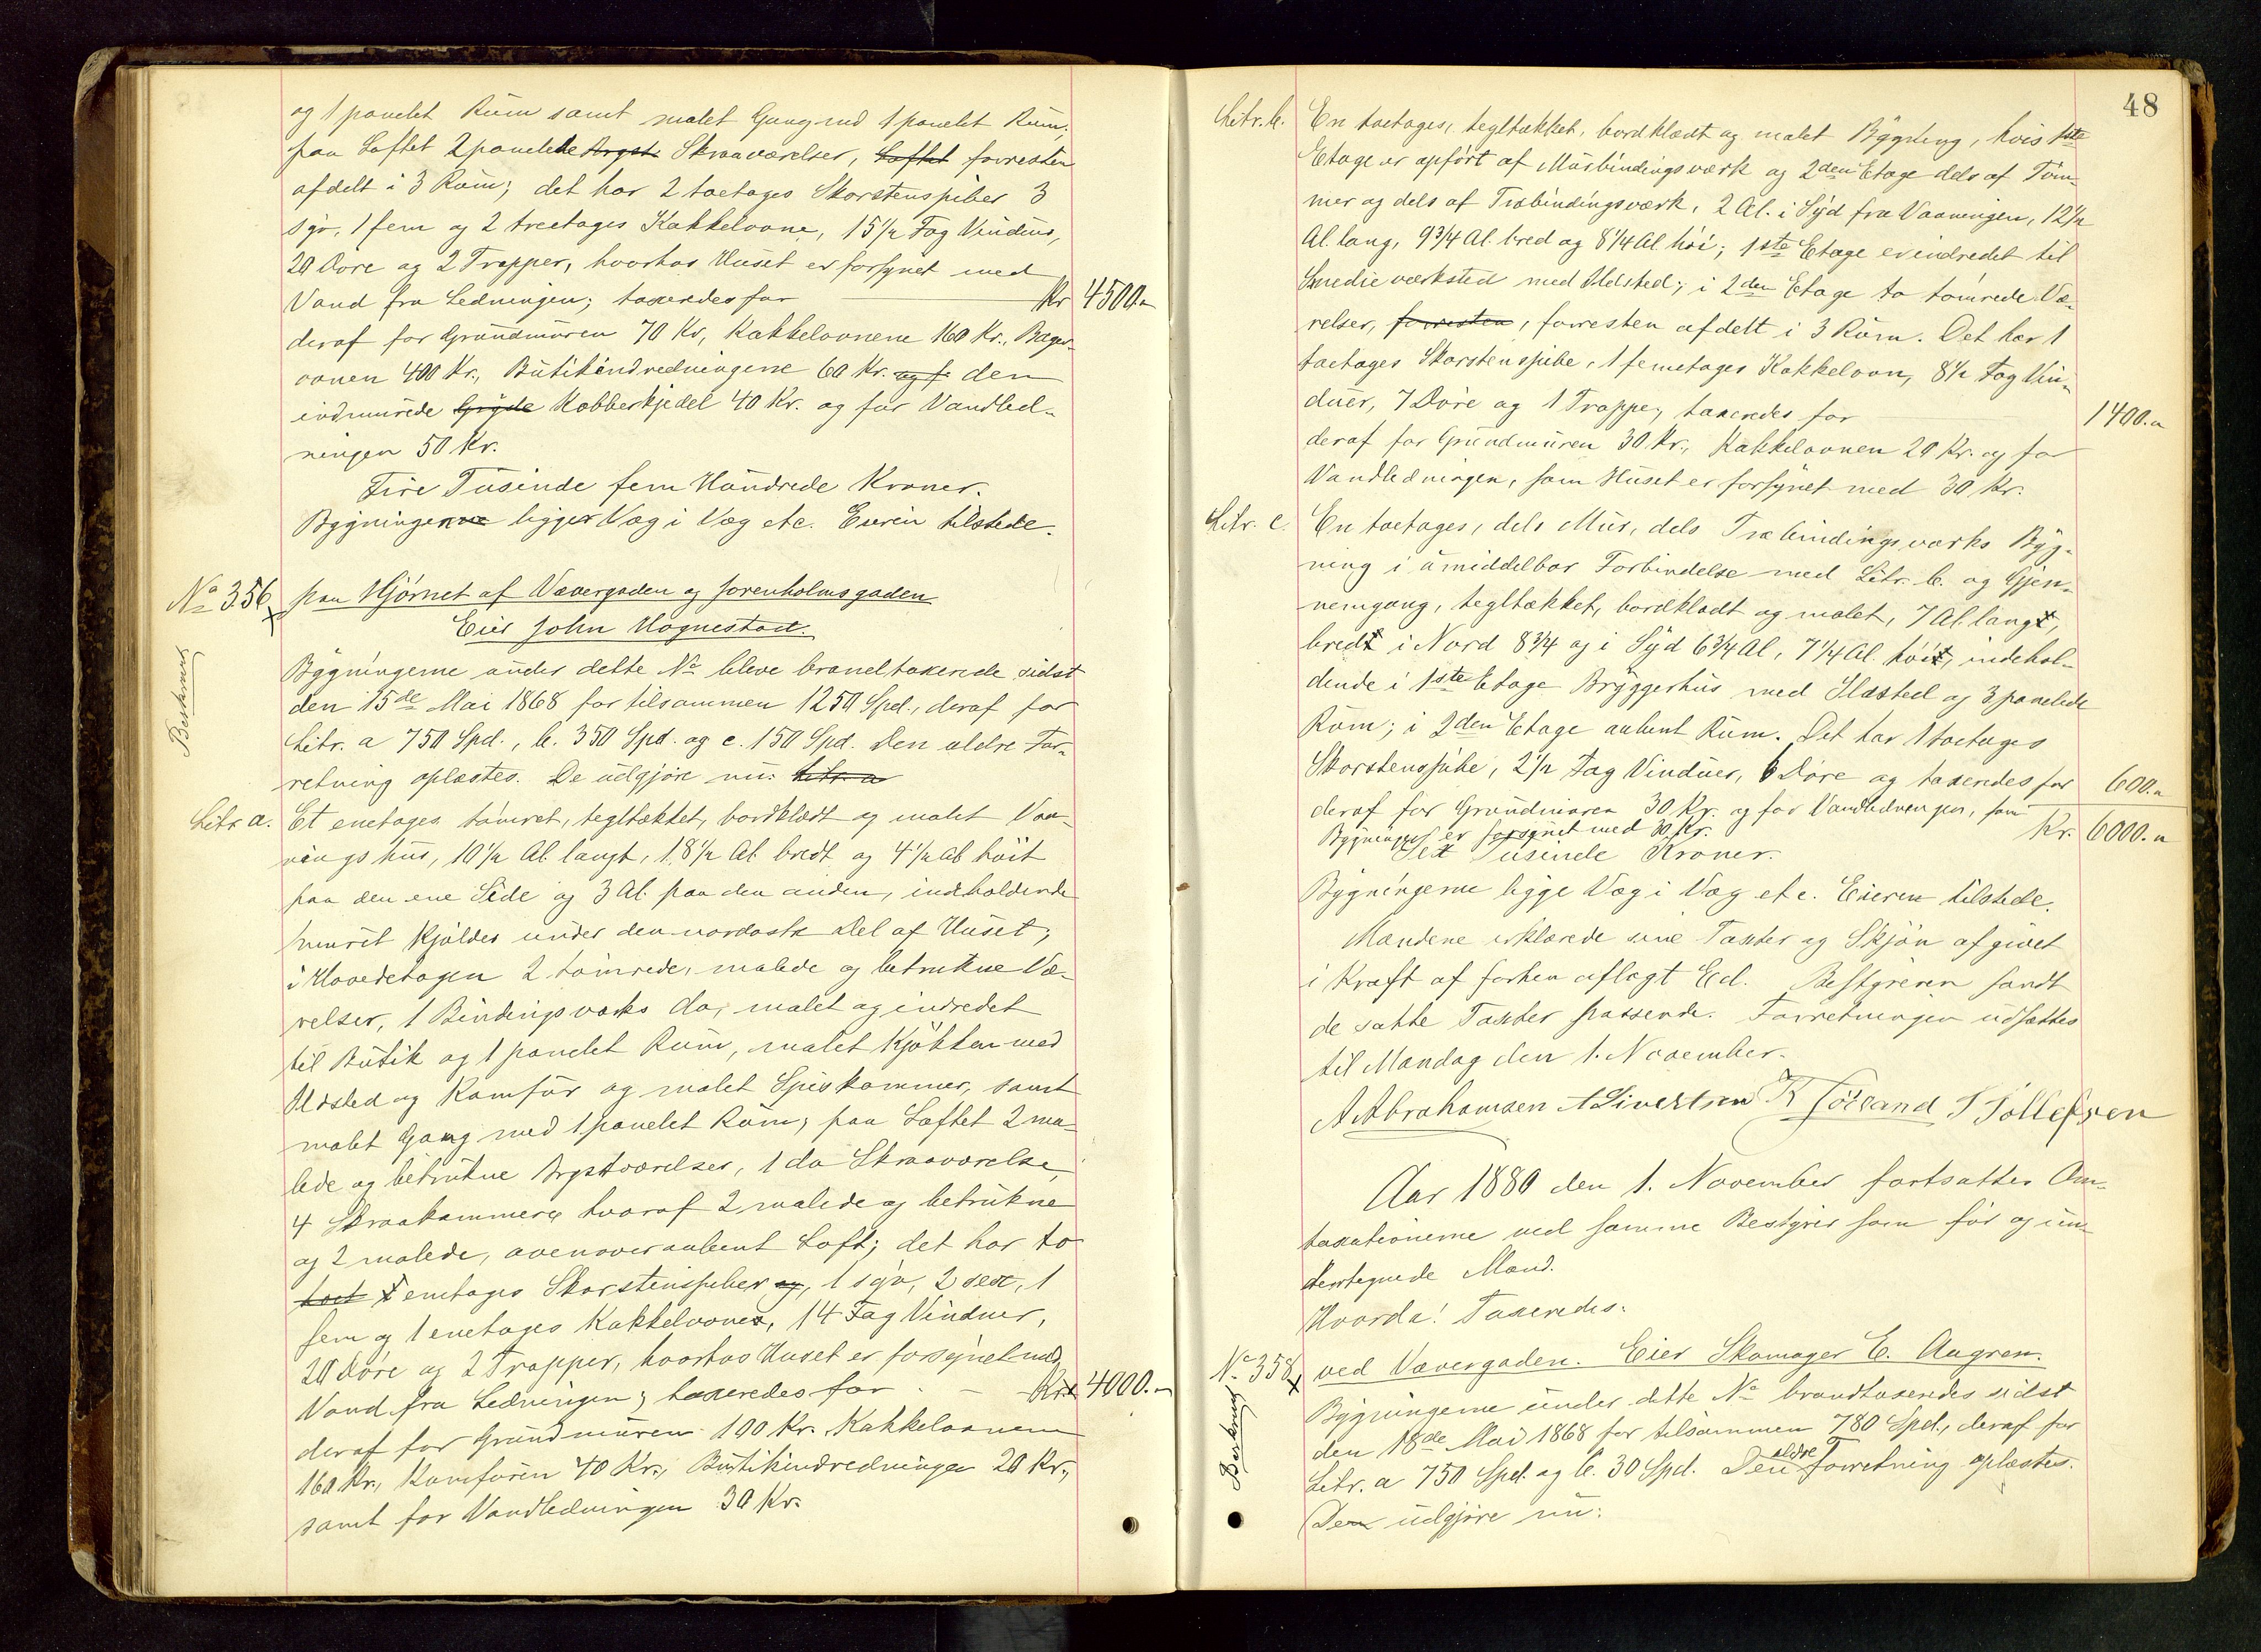 og 1 panelet Rum samt malet Gang med 1 panelet Rum.
paa Loftet 2 panelede Argst Skraaværelser, Loftet forresten
afdelt i 3 Rum; det har 2 toetages Skorstenspiber 3
syv, 1 fem og 2 treetages Kakkelovne, 15 1/2 Fag Vinduer,
20 Döre og 2 Trapper, hvorhos Huset er forsynet med
Vand fra Ledningen; taxeredes for Kr 4500.„
deraf for Grundmuren 70 Kr, Kakkelovnene 160 Kr., Bager-
ovnen 400 Kr., Butikindredningerne 60 Kr. og f den
indmurede Gryde Kobberkjedel 40 Kr. og for Vandled-
ningen 50 Kr.
Fire Tusinde fem Hundrede Kroner.
Bygningerne ligger Væg i Væg etc. Eieren tilstede.
No 356 paa Hjörnet af Vævergaden og Sorenholmsgaden
Eier John Hognestad.
Beskrevet
Bygningerne under dette No bleve brandtaxerede sidst
den 15de Mai 1868 for tilsammen 1250 Spd., deraf for
Litr. a 750 Spd., b. 350 Spd. og c. 150 Spd. Den ældre For-
retning oplæstes. De udgjöre nu: Litr. a
Litr. a. Et enetages tömret, tegltækket, bordklædt og malet Vaa-
ningshus, 10 1/2 Al. langt, 18 1/2 Al. bredt og 4 1/2 Al. höit
paa den ene Side og 3 Al. paa den anden, indeholdende
muret Kjælder under den nordöstre Del af Huset;
i Hovedetagen 2 tömrede, malede og betrukne Væ-
relser, 1 Bindingsværks do, malet og indredet
til Butik og 1 panelet Rum, malet Kjökken med
Ildsted og Komfur og malet Spiskammer, samt
malet Gang med 1 panelet Rum; paa Loftet 2 ma-
lede og betrukne Argstværelser, 1 do Skraaværelse,
4 Skraakammere hvoraf 2 malede og betrukne
og 2 malede, ovenover aabent Loft; det har to
toet enetages Skorstenspiber og, 1 syv, 2 sex, 1
fem og 1 enetages Kakkelovne, 14 Fag Vinduer,
20 Döre og 2 Trapper, hvorhos Huset er forsynet med
Vand fra Ledningen; taxeredes for Kr 4000.„
deraf for Grundmuren 100 Kr. Kakkelovnene
160 Kr., Komfuren 40 Kr., Butikindredningen 20 Kr.,
samt for Vandledningen 30 Kr.
48
Litr. b. En toetages, tegltækket, bordklædt og malet Bygning, hvis 1ste
Etage er opfört af Murbindingsværk og 2den Etage dels af Töm-
mer og dels af Træbindingsværk, 2 Al. i Syd fra Vaaningen, 12 1/2
Al. lang, 9 3/4 Al. bred og 8 1/4 Al. höi; 1ste Etage er indredet til
Smedieværksted med Ildsted; i 2den Etage to tömrede Væ-
relser, forresten, forresten afdelt i 3 Rum. Det har 1
toetages Skorstenspibe, 1 femetages Kakkelovn, 8 1/2 Fag Vin-
duer, 7 Döre og 1 Trappe, taxeredes for 1400.„
deraf for Grundmuren 30 Kr., Kakkelovnen 20 Kr. og for
Vandledningen, som Huset er forsynet med 30 Kr.
Litr. c. En toetages, dels Mur, dels Træbindingsværks Byg-
ning i umiddelbar Forbindelse med Litr. b. og Gjen-
nemgang, tegltækket, bordklædt og malet, 7 Al. lang,
bred i Nord 8 3/4 og i Syd 6 3/4 Al, 7 1/4 Al. höi, indehol-
dende i 1ste Etage Bryggerhus med Ildsted og 3 panelede
Rum; i 2den Etage aabent Rum. Det har 1 toetages
Skorstenspibe, 2 1/2 Fag Vinduer, 6 Döre og taxeredes for 600.„
deraf for Grundmuren 30 Kr. og for Vandledningen, som
Bygningen er forsynet med 30 Kr. Kr. 6000.„
Sex Tusinde Kroner.
Bygningerne ligge Væg i Væg etc. Eieren tilstede.
Mændene erklærede sine Taxter og Skjön afgivet
i Kraft af forhen aflagt Eed. Bestyreren fandt
de satte Taxter passende. Forretningen udsattes
til Mandag den 1. November.
A Abrahamsen A Sivertsen K Förland T Tollefsen
Aar 1880 den 1. November fortsattes Om-
taxationerne ved samme Bestyrer som för og un-
dertegnede Mænd.
Hvorda! Taxeredes:
No 358 ved Vævergaden. Eier Skomager E. Augren.
Beskrevet
Bygningerne under dette No brandtaxeredes sidst
den 18de Mai 1868 for tilsammen 780 Spd., deraf for
Litr. a 750 Spd. og b. 30 Spd. Den ældre Forretning oplæstes.
De udgjöre nu: